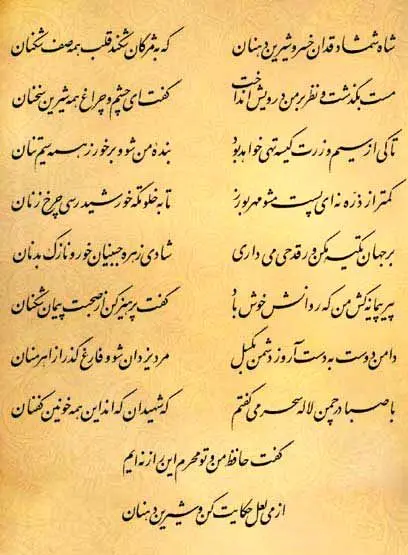 شاه شمشاد قدان خسرو شیرین دهنان که به مژگان شکند قلب همه صف شکنان
مست بگذشت و نظر بر من درویش انداخت گفت ای چشم و چراغ همه شیرین سخنان
تا کی از سیم و زرت کیسه تهی خواهد بود بنده من شو و برخور ز همه سیم تنان
کمتر از ذره نه ای پست مشو مهر بورز تا به خلوتگه خورشید رسی چرخ زنان
بر جهان تکیه مکن ور قدحی می داری شادی زهره جبینان خور و نازک بدنان
پیر پیمانه کش من که روانش خوش باد گفت پرهیز کن از صحبت پیمان شکنان
دامن دوست به دست آر و ز دشمن بگسل مرد یزدان شو و فارغ گذر از اهرمنان
با صبا در چمن لاله سحر می گفتم که شهیدان که اند این همه خونین کفنان
گفت حافظ من و تو محرم این راز نه ایم
از می لعل حکایت کن و شیرین دهنان